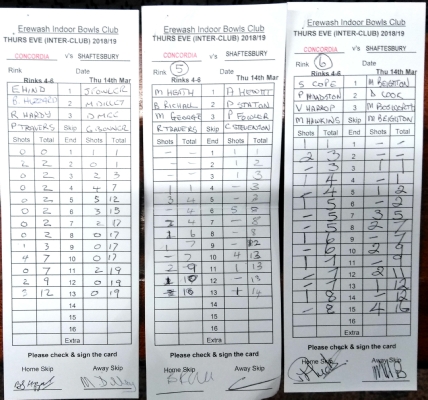 Erewash Indoor Bowls Club
THURS EVE (INTER-CLUB) 2018/19
CONCORDIA v's SHAFTESBURY
Rink Date
Rinks 4-6 Thu 14th Mar
E HIND 1
2
R HARDY 3
P TRAVERS Skip
Shots Total End Shots Total
0 0 1 1 1
2 2 2 0 1
0 2 3 2 3
0 2 4 4 7
0 2 5 5 12
0 2 6 3 15
0 2 7 2 17
0 2 8 0 17
1 3 9 0 17
4 7 10 0 17
0 7 11 2 19
2 9 12 0 19
3 12 13 0 19
14
15
16
Extra
Please check & sign the card
Home Skip Away Skip
Erewash Indoor Bowls Club
THURS EVE (INTER-CLUB) 2018/19
CONCORDIA v's SHAFTESBURY
Rink 5 Date
Rinks 4-6 Thu 14th Mar
M HEATH 1 A HEWITT
B 2 P STATON
M GEORGE 3 P FOWLER
R TRAVERS Skip C STEVENSON
Shots Total End Shots Total
- - 1 1 1
- - 2 1 2
- - 3 1 3
1 1 4 - 3
3 4 5 - 3
- 4 6 5
4 7 - 8
6 8 - 8
1 7 9 -
- 7 10 4 13
2 9 11 - 13
1 10 12 - 13
13 14
14
15
16
Extra
Please check & sign the card
Home Skip Away Skip
Erewash Indoor Bowls Club
THURS EVE (INTER-CLUB) 2018/19
CONCORDIA v's SHAFTESBURY
Rink 6 Date
Rinks 4-6 Thu 14th Mar
S COPE 1 M BRIGHTON
P HUDSTON 2 D COOK
V HARROP 3
M HAWKINS Skip M BRIGHTON
Shots Total End Shots Total
1 1 1 - -
2 3 2 - -
- 3 3
1 4 4 - 1
- 4 5 1 2
1 5 6 - 2
- 5 7 3 5
- 5 8 2 7
1 6 9 - 7
- 6 10 2 9
1 7 11 - 9
- 7 12 2 11
- 7 13 1 12
1 8 14 - 12
- 8 15 4 16
16
Extra
Please check & sign the card
Home Skip Away Skip